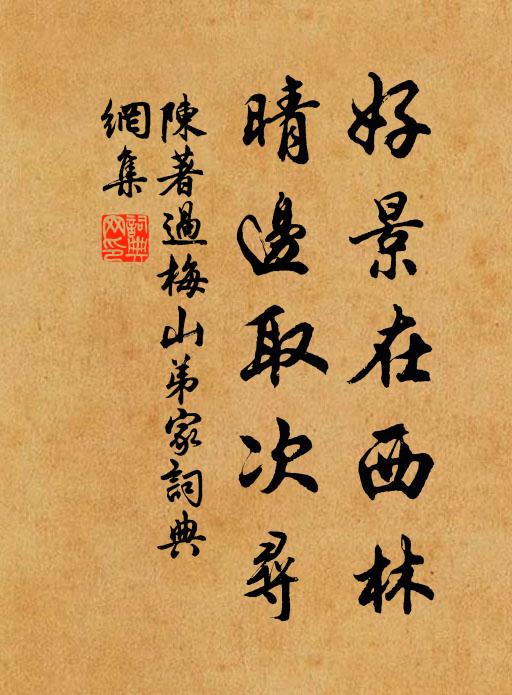 好景在西林
晴邊取次尋
陳著過梅山弟家詞典
網集
詞典
网印